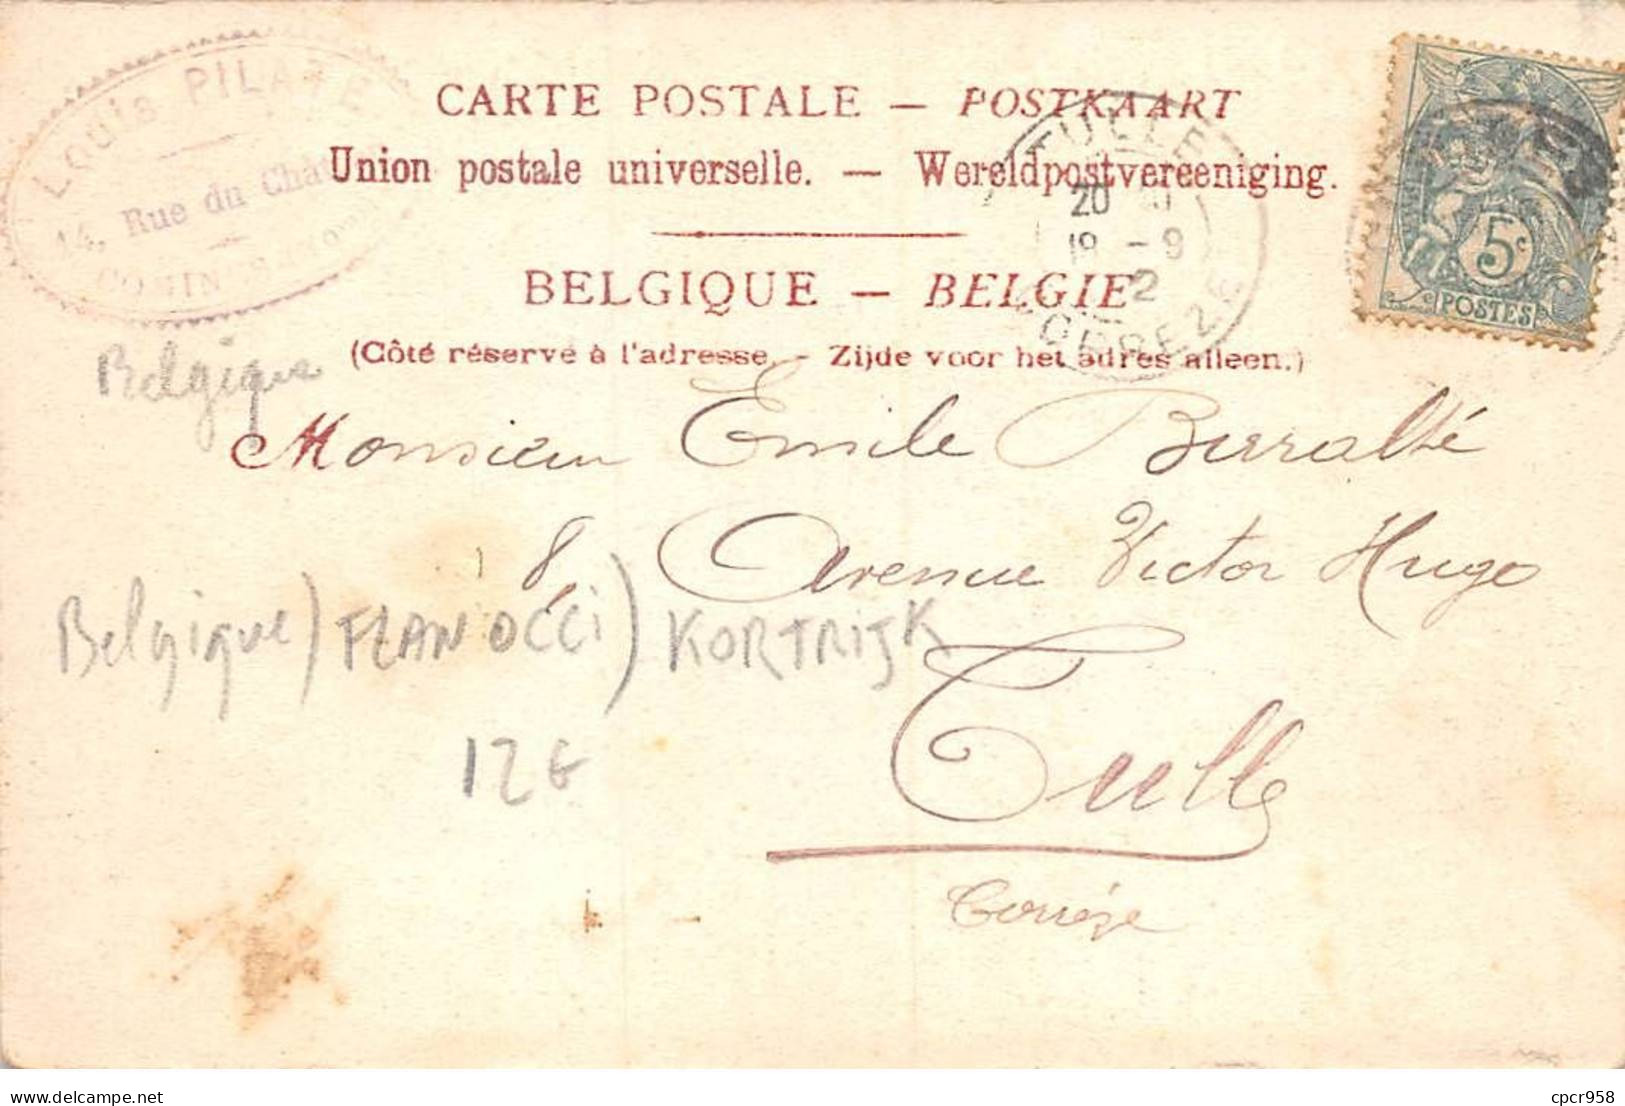 Louis PILATE
14, Rue du Chât
COMINES
CARTE POSTALE — POSTKAART
Union postale universelle. — Wereldpostvereeniging.
BELGIQUE — BELGIE
(Côté réservé à l'adresse. - Zijde voor het adres alleen.)
TULLE
20
18 - 9
2
CORREZE
5c
POSTES
Belgique
Monsieur Emile
8, Avenue Victor Hugo
Belgique) FLANOCCI) KORTRIJK
Tulle
12€
Corrèze
cpcr958